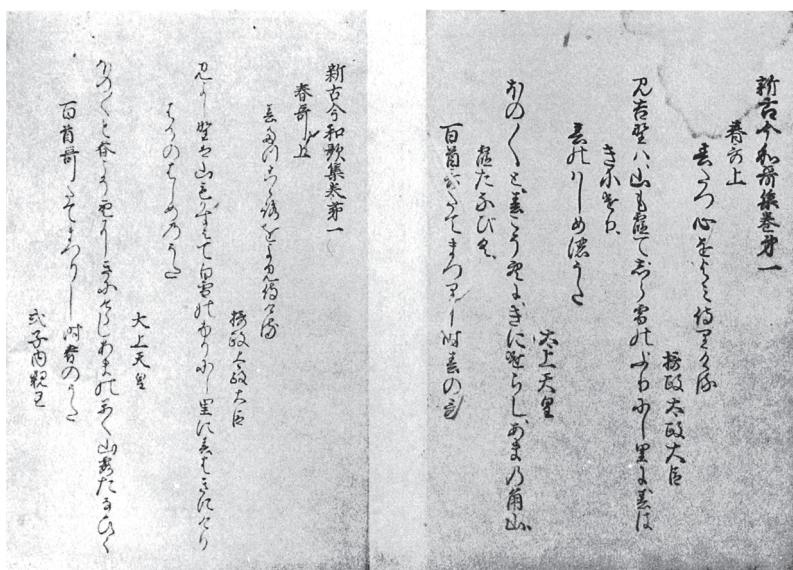 新古今和哥集巻第一
春哥上
春たつ心をよみ侍りける
摂政太政大臣
み吉野ハ山も霞てしら雪のふりにし里に春は
きにけり
春のハしめ濃うた
太上天皇
ほの〱と春こそ空にきにけらしあま乃香山
霞たなびく
百首哥たてまつりし時春の哥
新古今和歌集巻第一
春哥上
春たつこゝろをよみ侍ける
摂政太政大臣
みよし野は山もかすみて白雪のふりにし里に春はきにけり
はるのはしめのうた
大上天皇
ほの〱と春こそ空にきにけらしあまのかく山霞たなひく
百首哥たてまつりし時春のうた
式子内親王